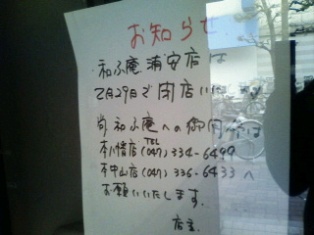 お知らせ
和ふ庵 浦安店は
2月29日で閉店いた
尚 和ふ庵への御用命は
本八幡店 TEL (047) 334-6499
本中山店 (047) 336-6433 へ
お願いいたします。
店主